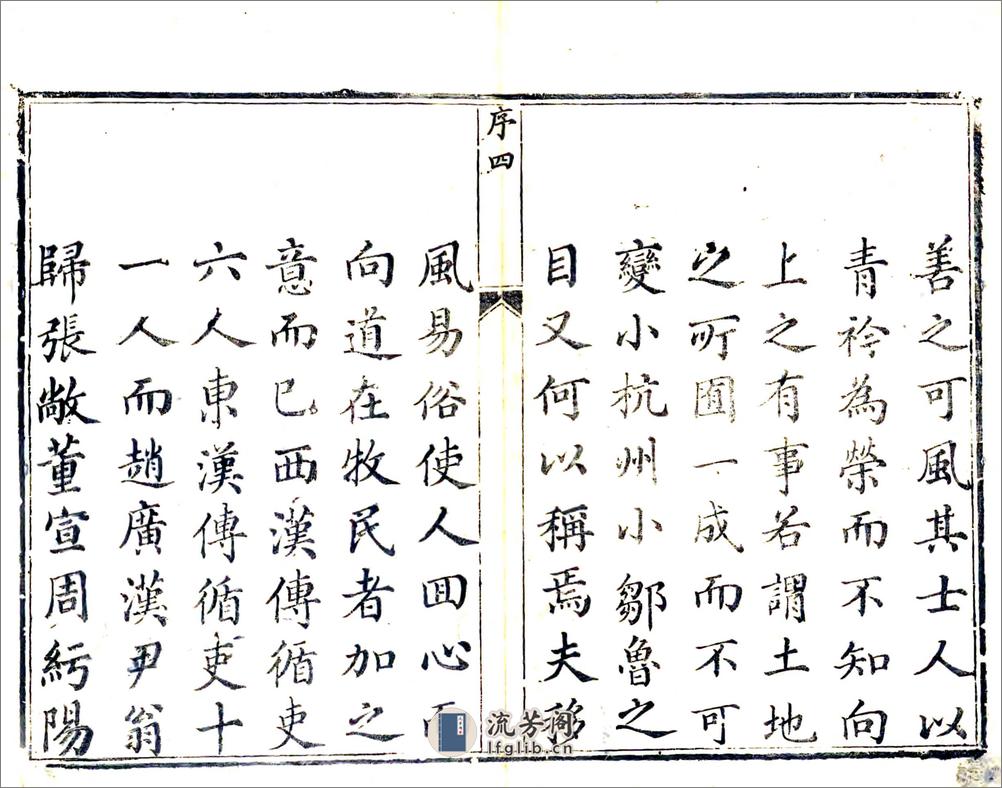 善之可風其士人以
青衿為榮而不知向
上之有事若謂土地
之所囿一成而不可
變小杭州小鄒魯之
目又何以稱焉夫移
序四
風易俗使人囬心而
向道在牧民者加之
意而已西漢傳循吏
六人東漢傳循吏十
一人而趙廣漢尹翁
歸張敞董宣周紆陽
流芳阁
lfglib.cn